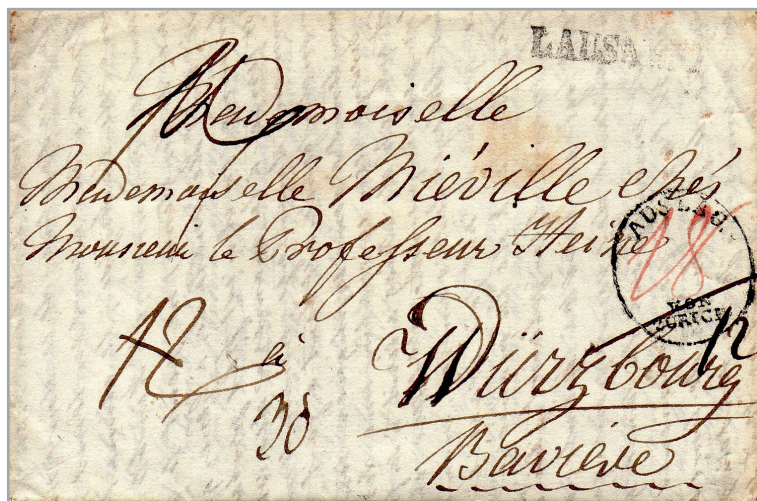 LAUSANNE
Mademoiselle
Mademoiselle Miéville chés
Monsieur le Professeur Heine
AUSLAG.
18
VON
ZURICH
12
12
à
Würzbourg
30
Bavière